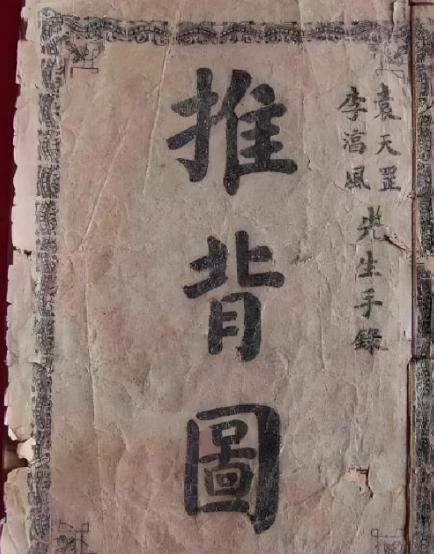 袁天罡
李淳風
先生手錄
推背圖